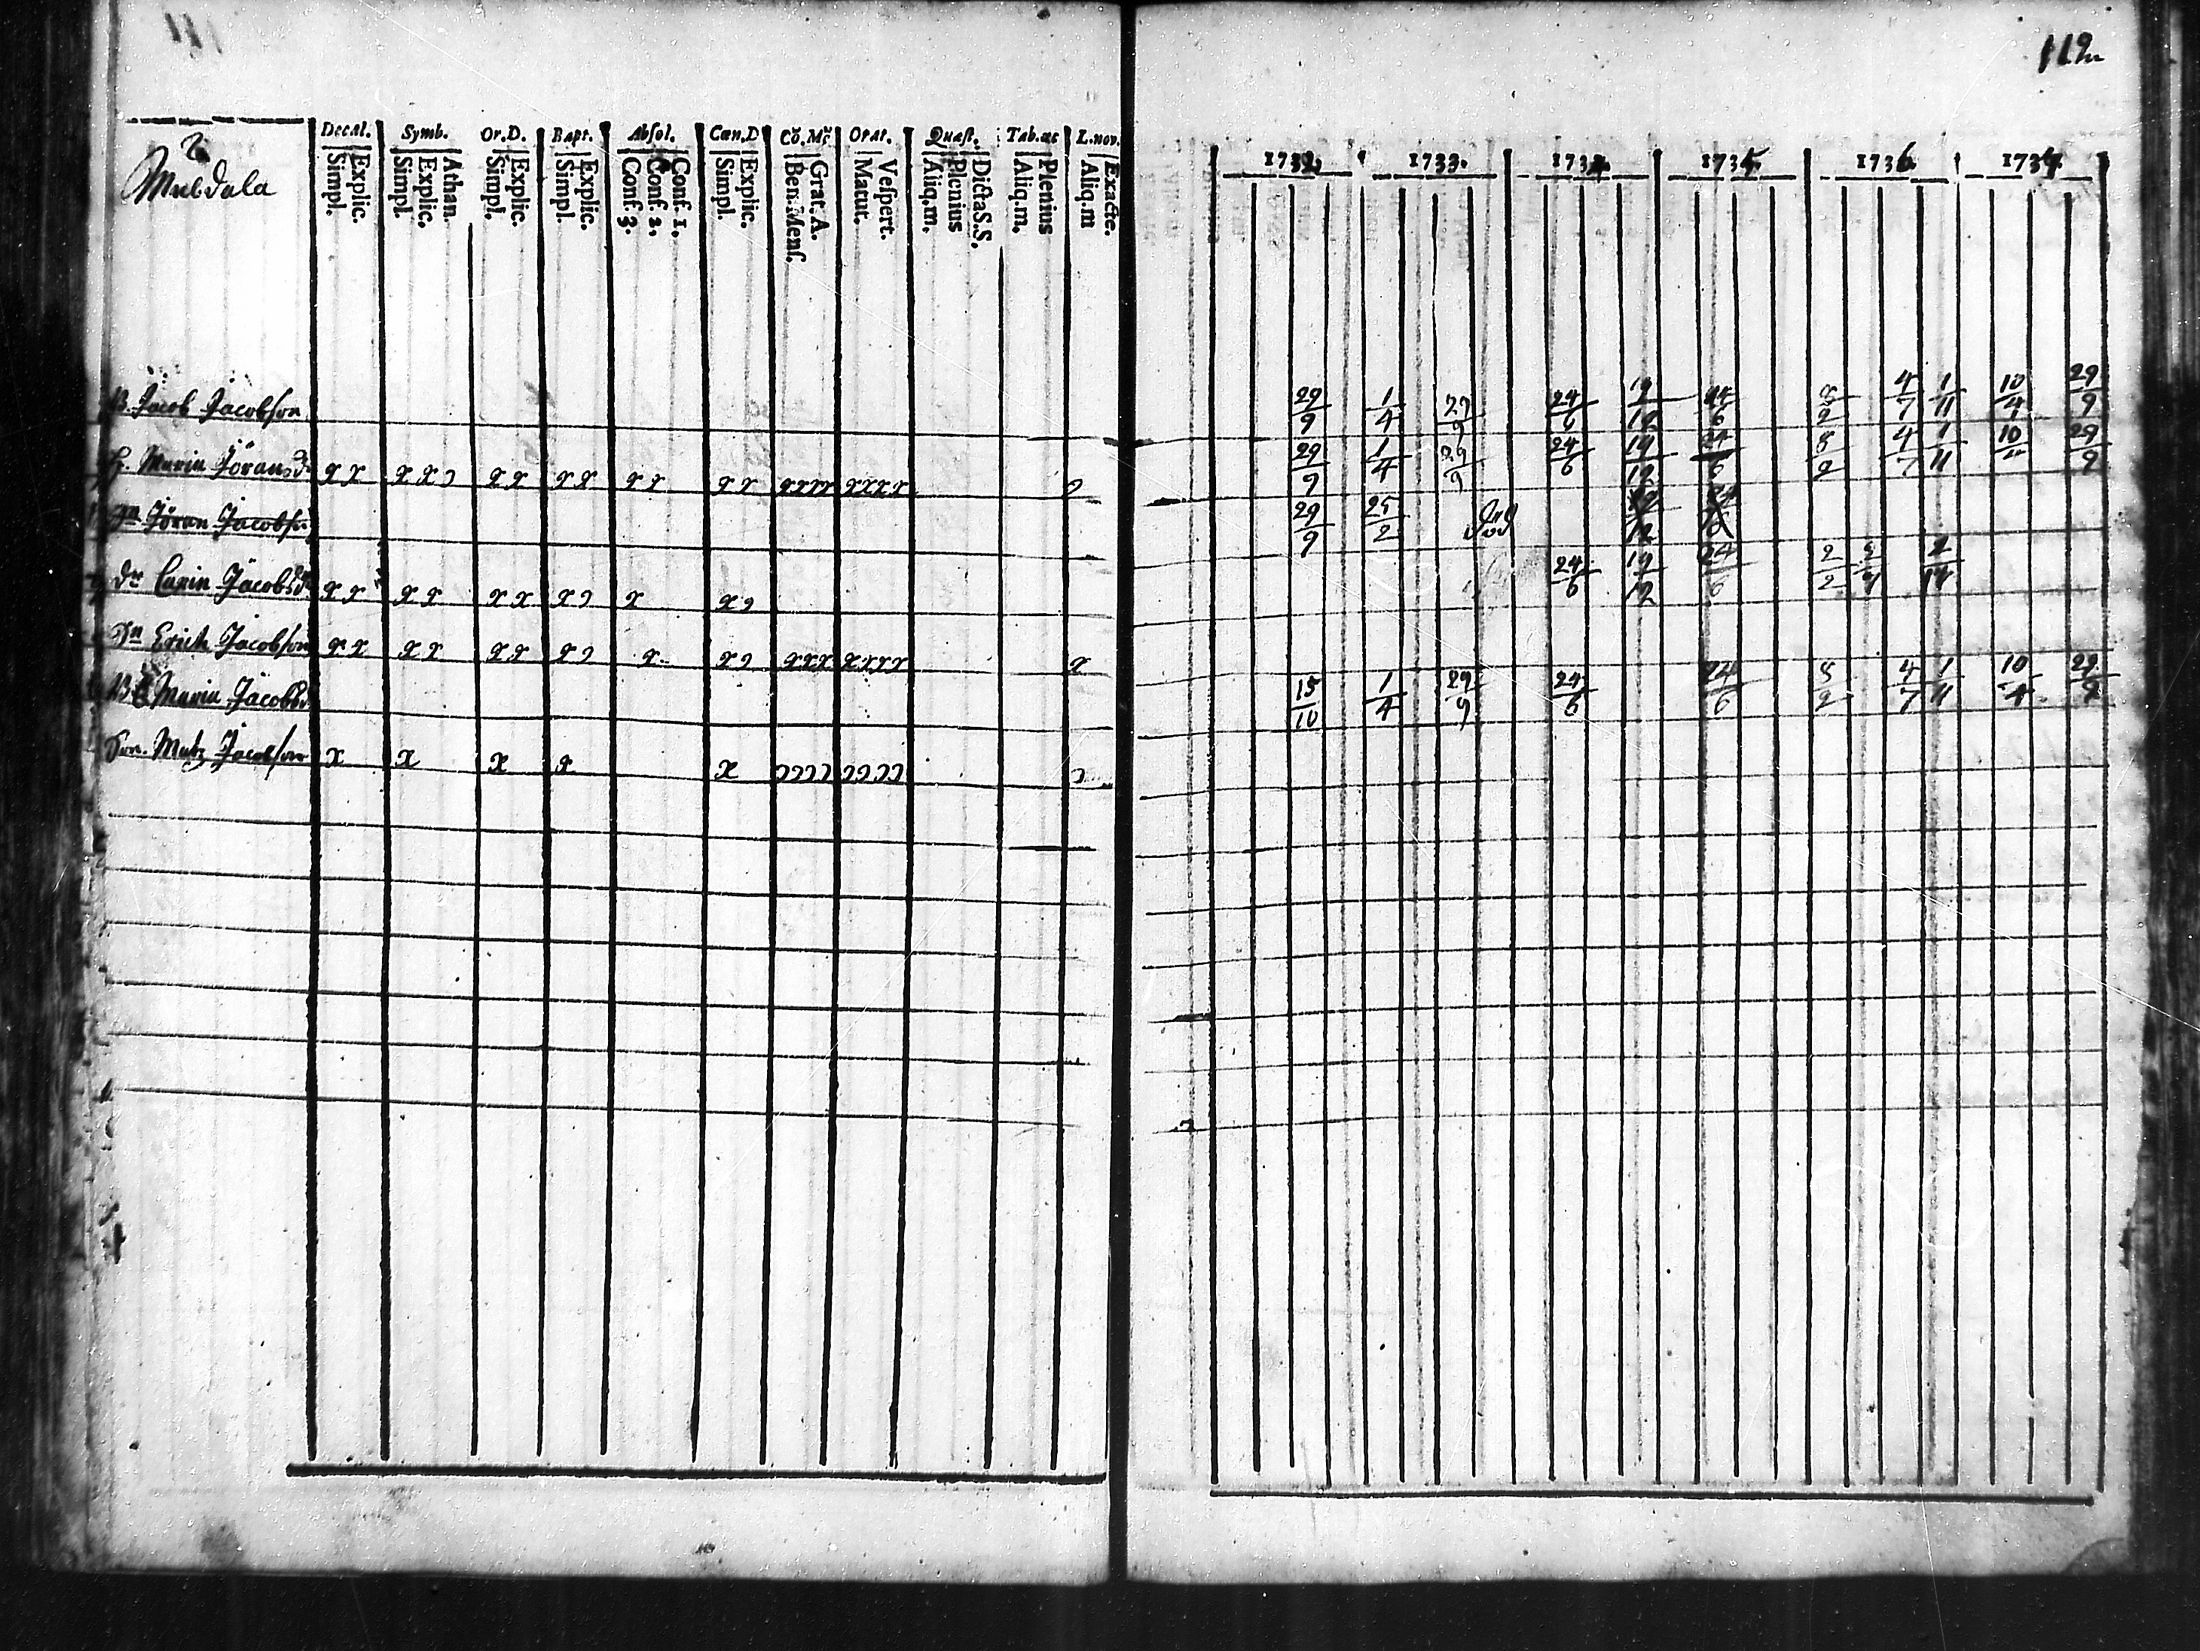 112
Muldala
Decal. Symb. Or.D. Bapt. Absol. Cœn.D Orat. Quæst. Tab.æc L.nov.
Explic. Simpl. Athan. Explic. Simpl. Explic. Simpl. Explic. Simpl. Conf 1. Conf 2. Conf 3. Explic. Simpl. Grat. A. Ben. Menſ. Veſpert. Matut. Dicta S.S. Plenius Aliq.m. Plenius Aliq.m. Exacte. Aliq.m
1732. 1733. 1734. 1735. 1736. 1737.
B. Jacob Jacobſon 29/9 1/4 29/9 24/6 19/12 24/6 8/2 4/7 1/11 10/4 29/9
H. Maria Jöransd. x x x x x x x x x x x x xxxx xxxx 29/9 1/4 29/9 24/6 19/12 24/6 8/2 4/7 1/11 10/4 29/9
Jöran Jacobſ 29/9 25/2 död
Dr Carin Jacobsd. x x x x x x x x x 24/6 19/12 24/6
Sn Erich Jacobſon x x x x x x x x x xxx xxxx x
Maria Jacobsd 15/10 1/4 29/9 24/6 24/6 8/2 4/7 1/11 10/4 29/9
Son. Matz Jacobſon x x x x x